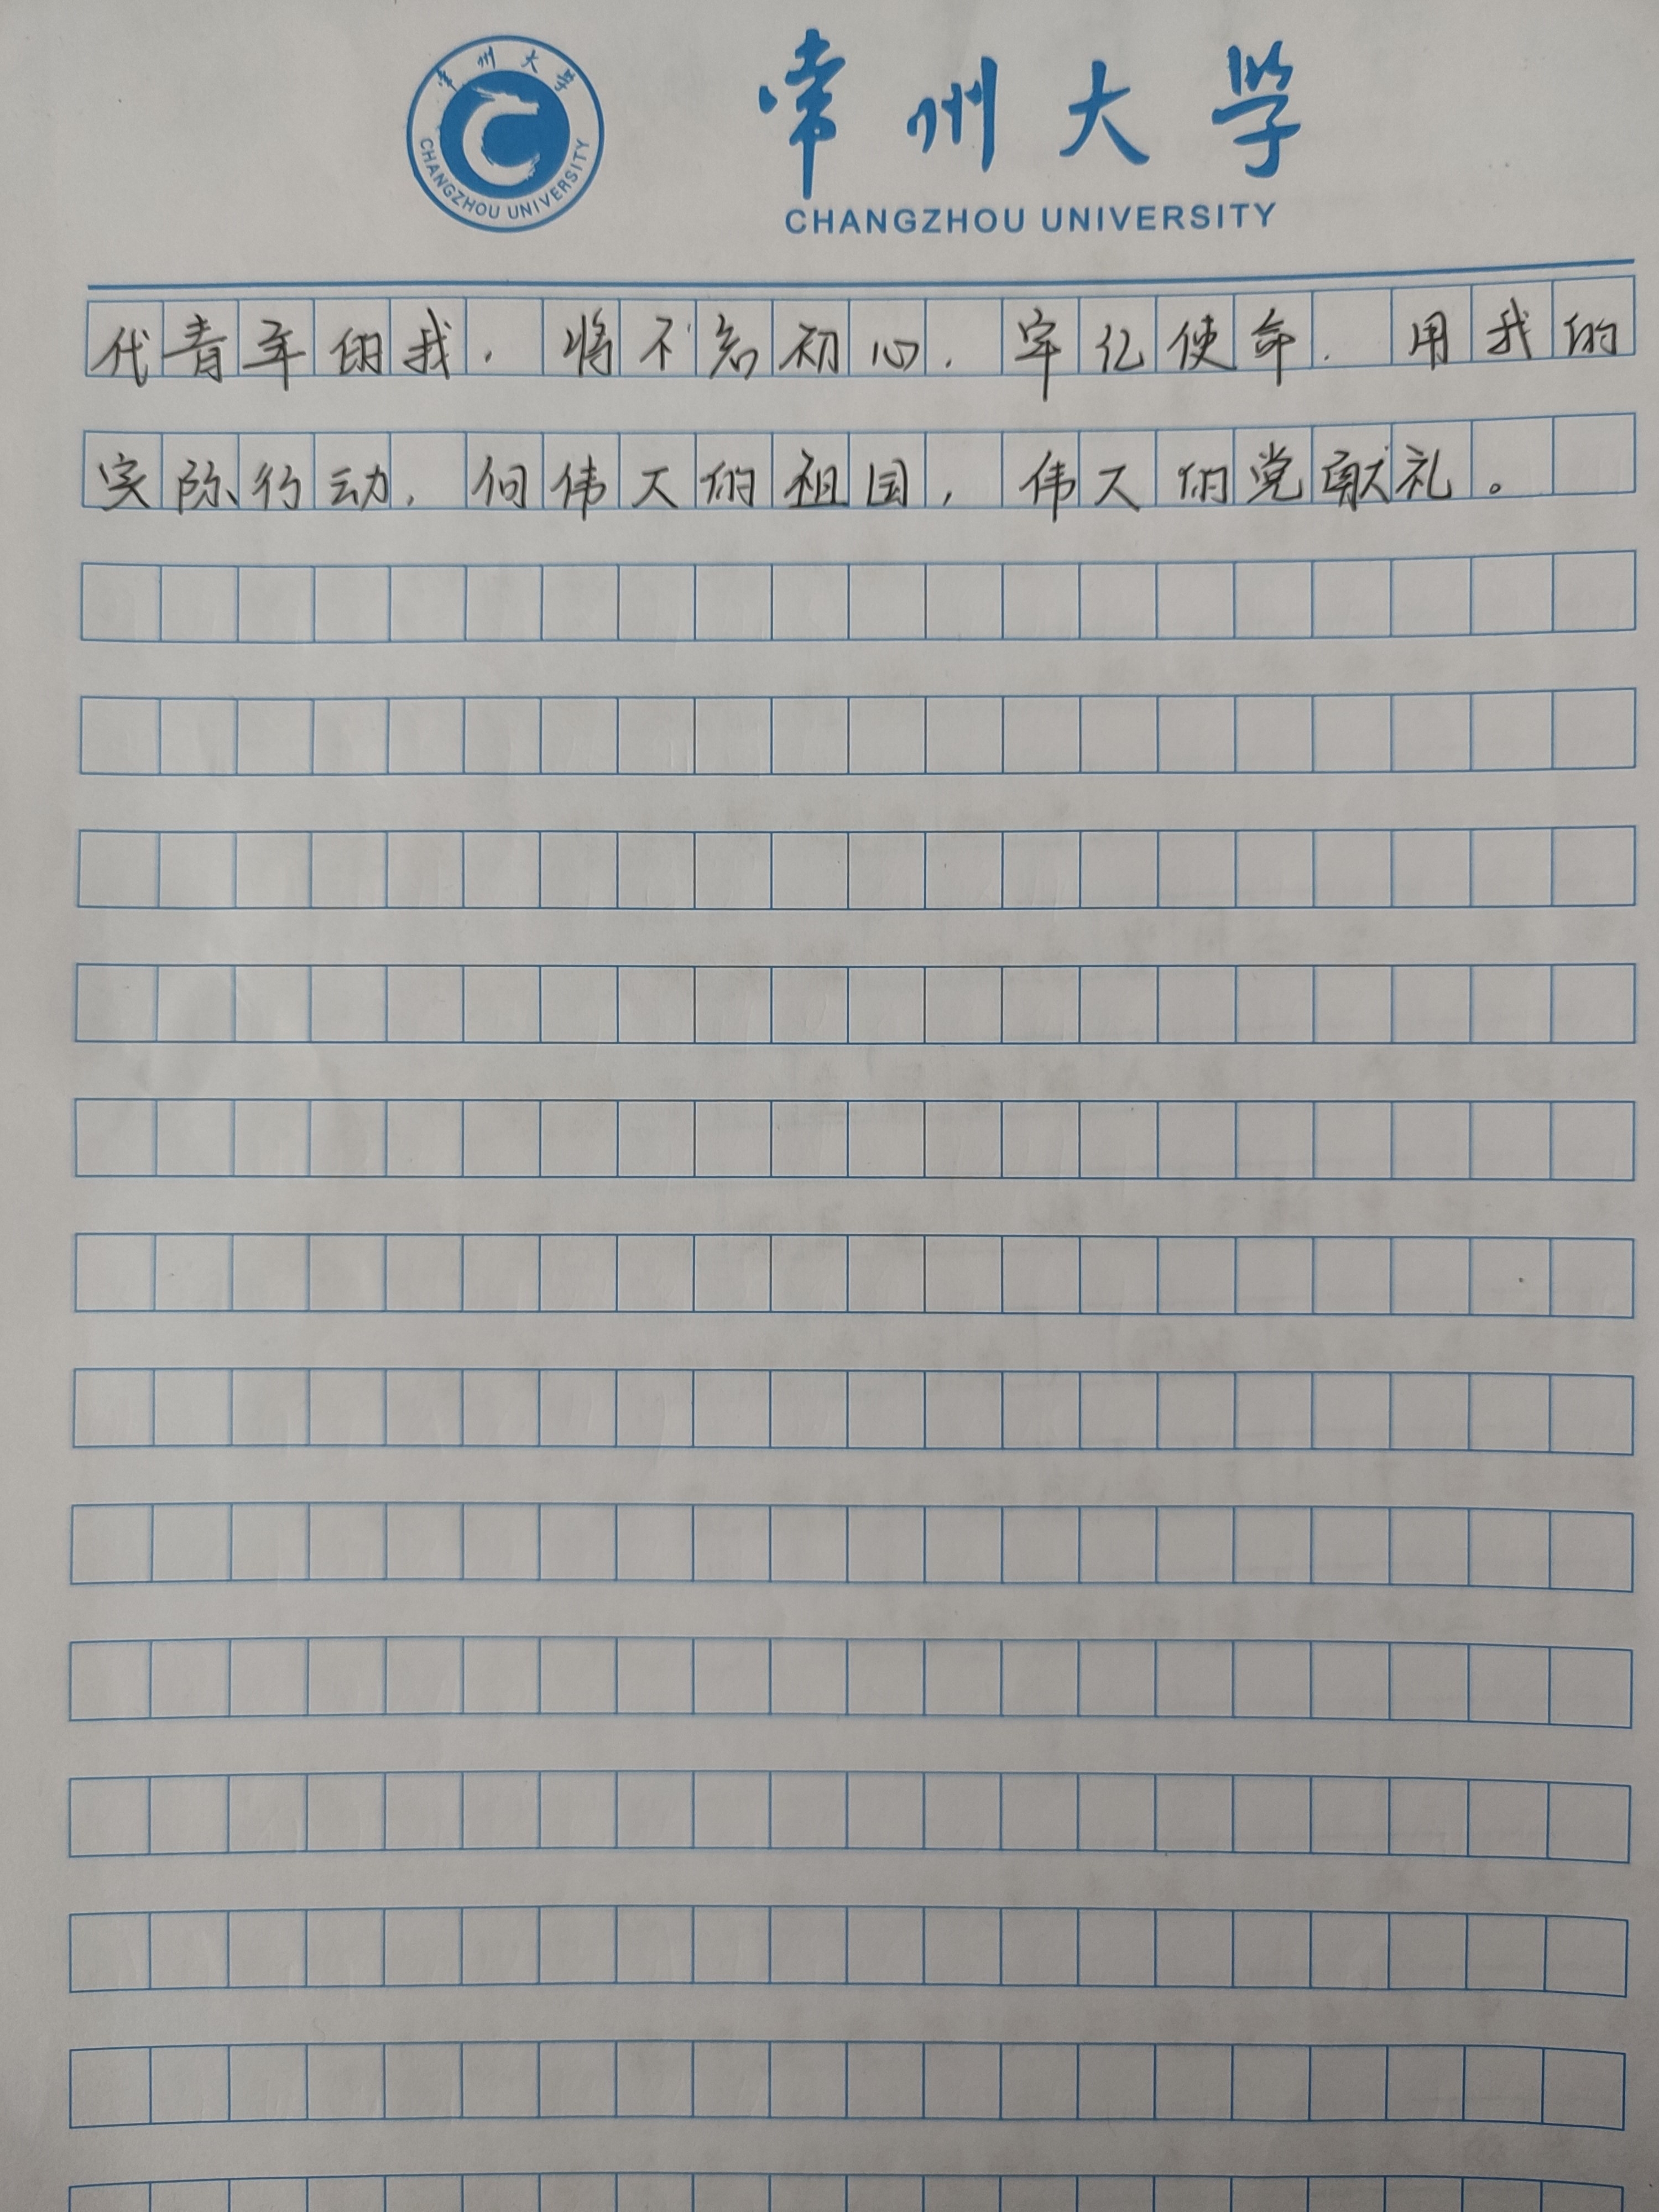 常州大学
CHANGZHOU UNIVERSITY
常州大学
CHANGZHOU UNIVERSITY
代青年的我，将不忘初心，牢记使命，用我的
实际行动，向伟大的祖国，伟大的党献礼。